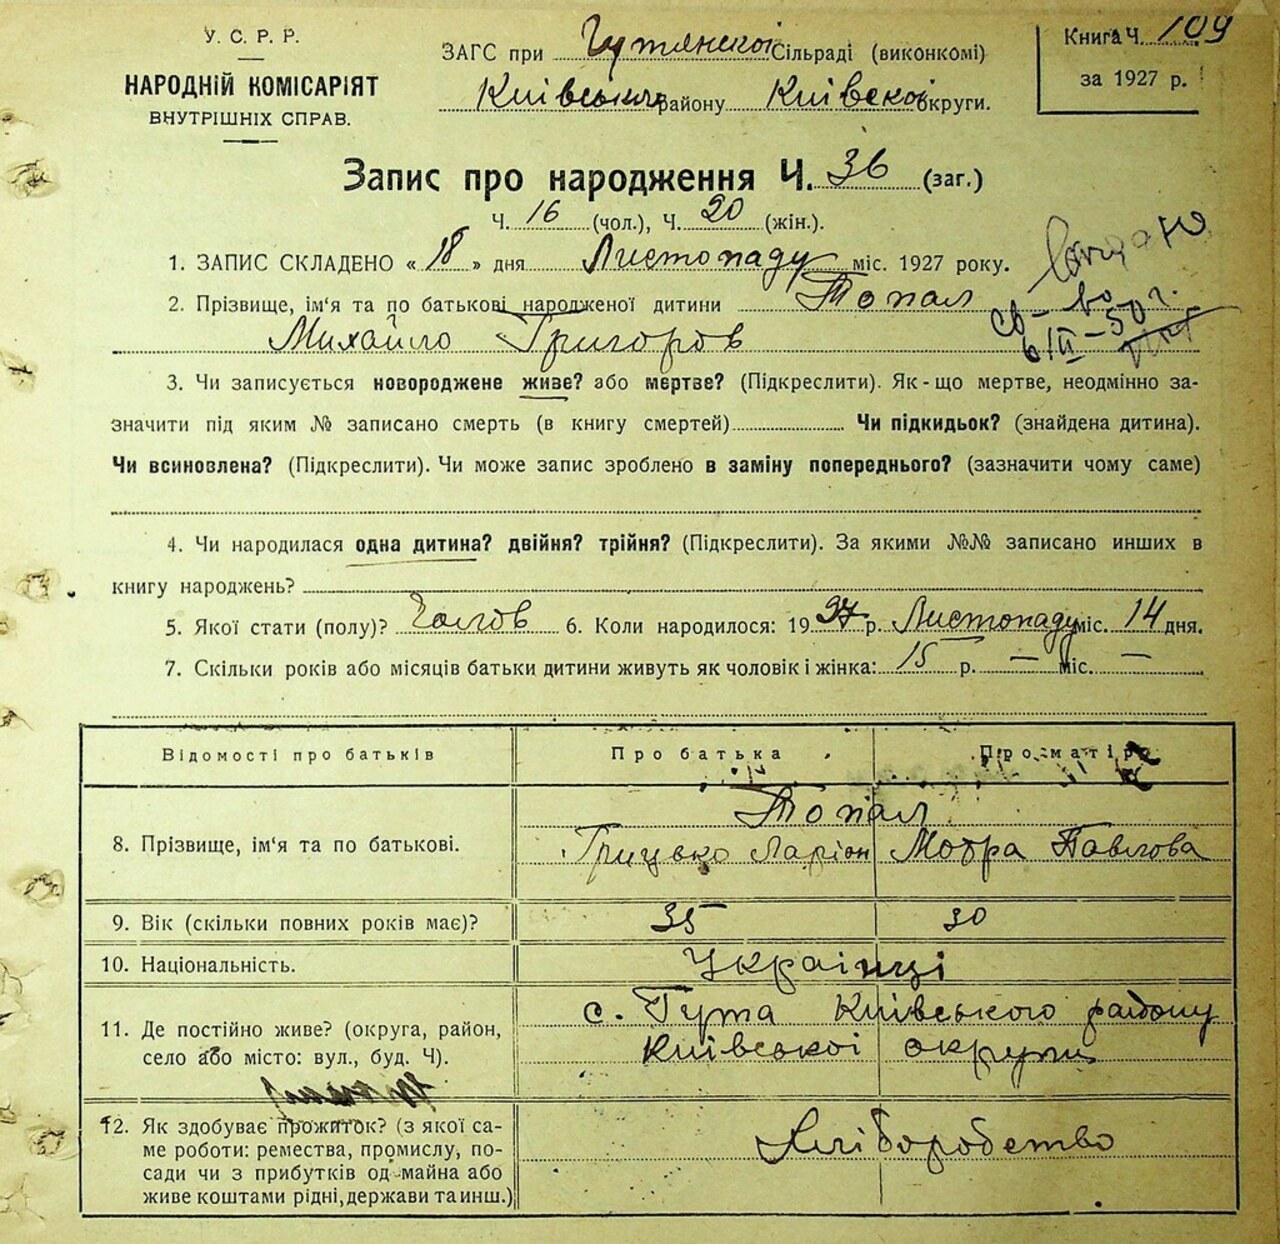 У. С. Р. Р.
НАРОДНІЙ КОМІСАРІЯТ
ВНУТРІШНІХ СПРАВ.
ЗАГС при Гутянскої Сільраді (виконкомі)
Київськім району Київскої округи.
Книга Ч. 109
за 1927 р.
Запис про народження Ч. 36 (заг.)
Ч. 16 (чол.), Ч. 20 (жін.).
1. ЗАПИС СКЛАДЕНО « 18 » дня Листопаду міс. 1927 року.
2. Прізвище, ім‘я та по батькові народженої дитини Топал
Михайло Григоров
св-во
6/III-50 г.
3. Чи записується новороджене живе? або мертве? (Підкреслити). Як-що мертве, неодмінно за-
значити під яким № записано смерть (в книгу смертей) Чи підкидьок? (знайдена дитина).
Чи всиновлена? (Підкреслити). Чи може запис зроблено в заміну попереднього? (зазначити чому саме)
4. Чи народилася одна дитина? двійня? трійня? (Підкреслити). За якими №№ записано инших в
книгу народжень?
5. Якої стати (полу)? Чолов 6. Коли народилося: 1927 р. Листопаду міс. 14 дня.
7. Скільки років або місяців батьки дитини живуть як чоловік і жінка: 15 р. — міс. —
Відомості про батьків Про батька Про матір
Топал
8. Прізвище, ім‘я та по батькові. Грицько Ларіон Мотра Павлова
9. Вік (скільки повних років має)? 35 30
10. Національність. Українці
11. Де постійно живе? (округа, район, с. Гута Київського району
село або місто: вул., буд. Ч). Київської округи
12. Як здобуває прожиток? (з якої са-
ме роботи: ремества, промислу, по- Хліборобство
сади чи з прибутків од майна або
живе коштами рідні, держави та инш.)